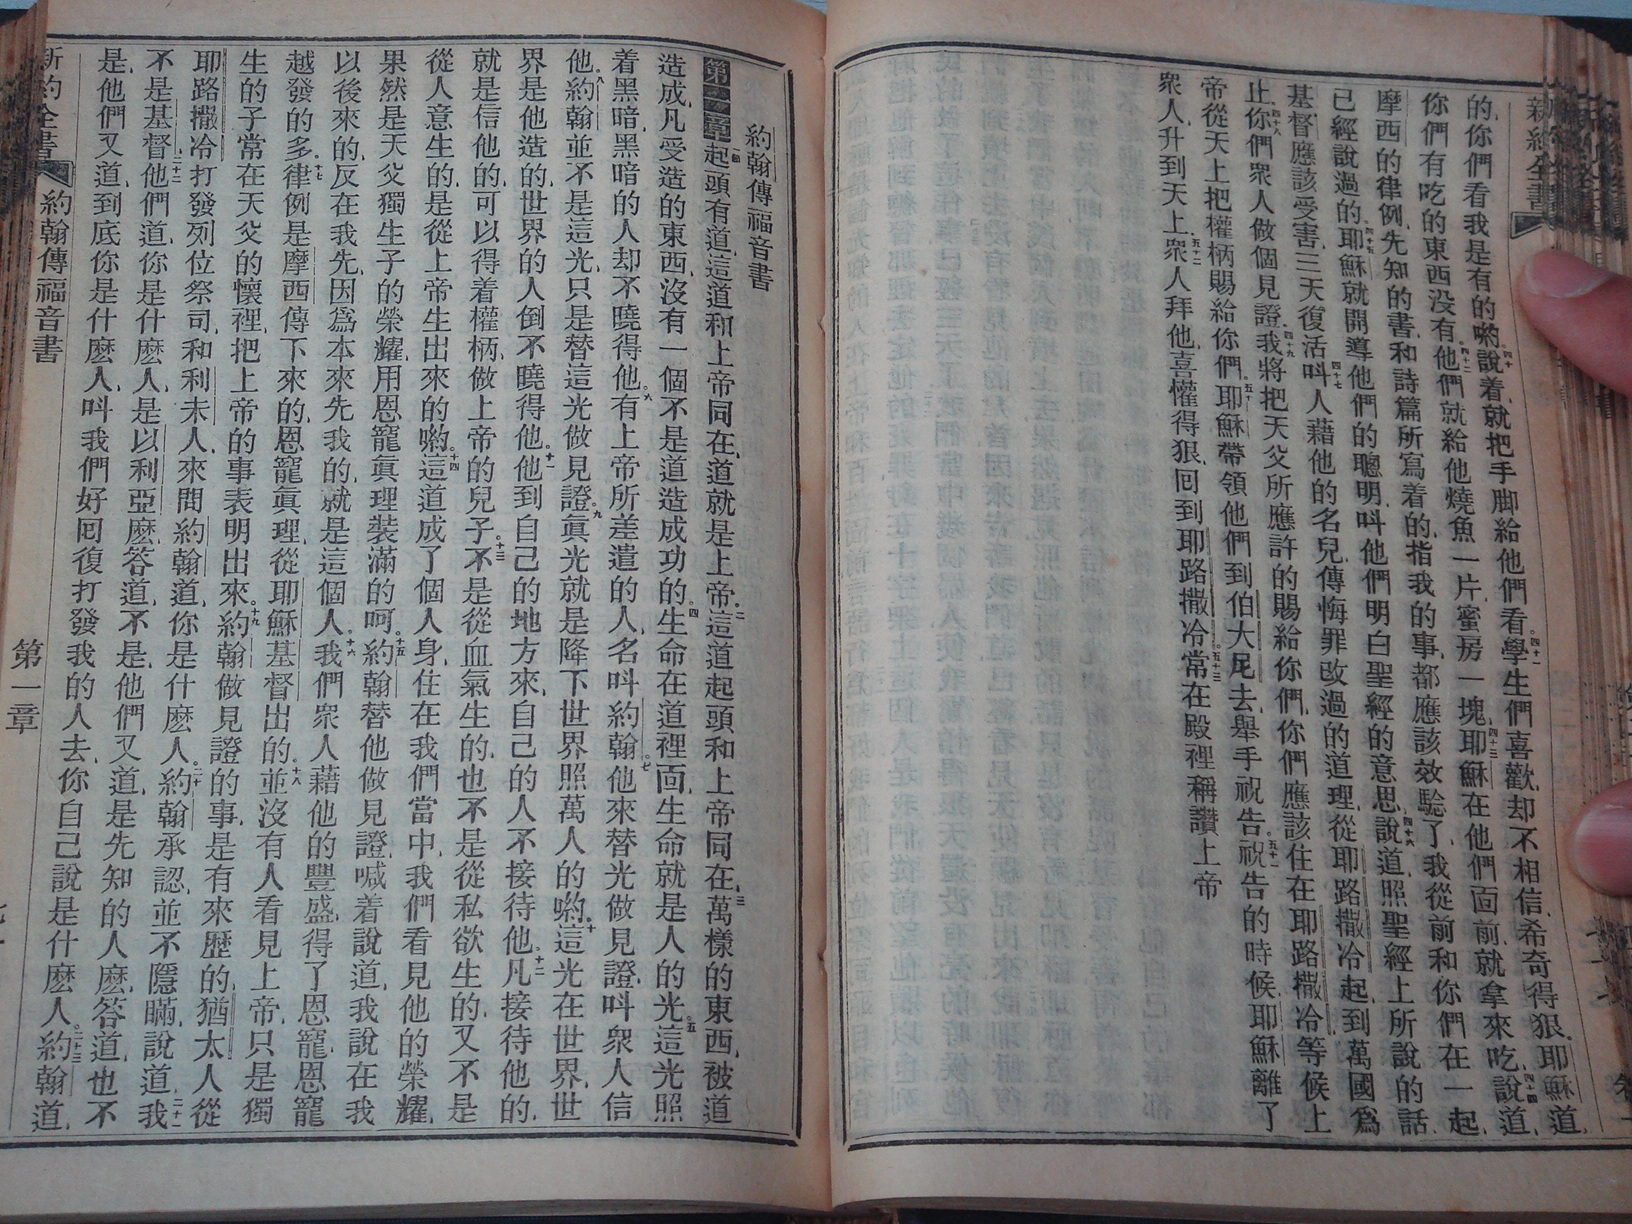 新約全書
的、你們看我是有的喲。四十說着就把手脚給他們看。四十一學生們喜歡、却不相信、希奇得狠、耶穌道、
你們有吃的東西没有。四十二他們就給他燒魚一片、蜜房一塊、四十三耶穌在他們面前、就拿來吃。四十四說道、
摩西的律例、先知的書、和詩篇所寫着的、指我的事、都應該效騐了、我從前和你們在一起、
已經說過的。四十五耶穌就開導他們的聰明、呌他們明白聖經的意思、四十六說道、照聖經上所說的話、
基督應該受害、三天復活、四十七呌人藉他的名兒、傳悔罪改過的道理、從耶路撒冷起、到萬國爲
止。四十八你們衆人做個見證。四十九我將把天父所應許的賜給你們、你們應該住在耶路撒冷、等候上
帝從天上把權柄賜給你們。五十耶穌帶領他們到伯大尼去、舉手祝告。五十一祝告的時候、耶穌離了
衆人、升到天上。五十二衆人拜他、喜懽得狠、囘到耶路撒冷。五十三常在殿裡稱讃上帝
約翰傳福音書
第一章 一起頭有道、這道和上帝同在、道就是上帝。二這道起頭和上帝同在。三萬樣的東西、被道
造成、凡受造的東西、沒有一個不是道造成功的。四生命在道裡面、生命就是人的光。五這光照
着黑暗、黑暗的人却不曉得他。六有上帝所差遣的人、名呌約翰。七他來替光做見證、呌衆人信
他。八約翰並不是這光、只是替這光做見證。九眞光就是降下世界照萬人的喲。十這光在世界、世
界是他造的、世界的人倒不曉得他。十一他到自己的地方來、自己的人不接待他。十二凡接待他的、
就是信他的、可以得着權柄、做上帝的兒子。十三不是從血氣生的、也不是從私欲生的、又不是
從人意生的、是從上帝生出來的喲。十四這道成了個人身、住在我們當中、我們看見他的榮耀、
果然是天父獨生子的榮耀、用恩寵眞理裝滿的呵。十五約翰替他做見證、喊着說道、我說在我
以後來的、反在我先、因爲本來先我的、就是這個人。十六我們衆人藉他的豐盛、得了恩寵、恩寵
越發的多。十七律例是摩西傳下來的、恩寵眞理、從耶穌基督出的。十八並沒有人看見上帝、只是獨
生的子常在天父的懷裡、把上帝的事表明出來。十九約翰做見證的事、是有來歷的、猶太人從
耶路撒冷打發列位祭司、和利未人、來問約翰道、你是什麽人。二十約翰承認、並不隱瞞、說道、我
不是基督。二十一他們道、你是什麽人、是以利亞麽、答道、不是、他們又道、是先知的人麽、答道、也不
是。二十二他們又道、到底你是什麽人、呌我們好囘復打發我的人去、你自己說是什麽人。二十三約翰道、
新約全書 約翰傳福音書 第一章